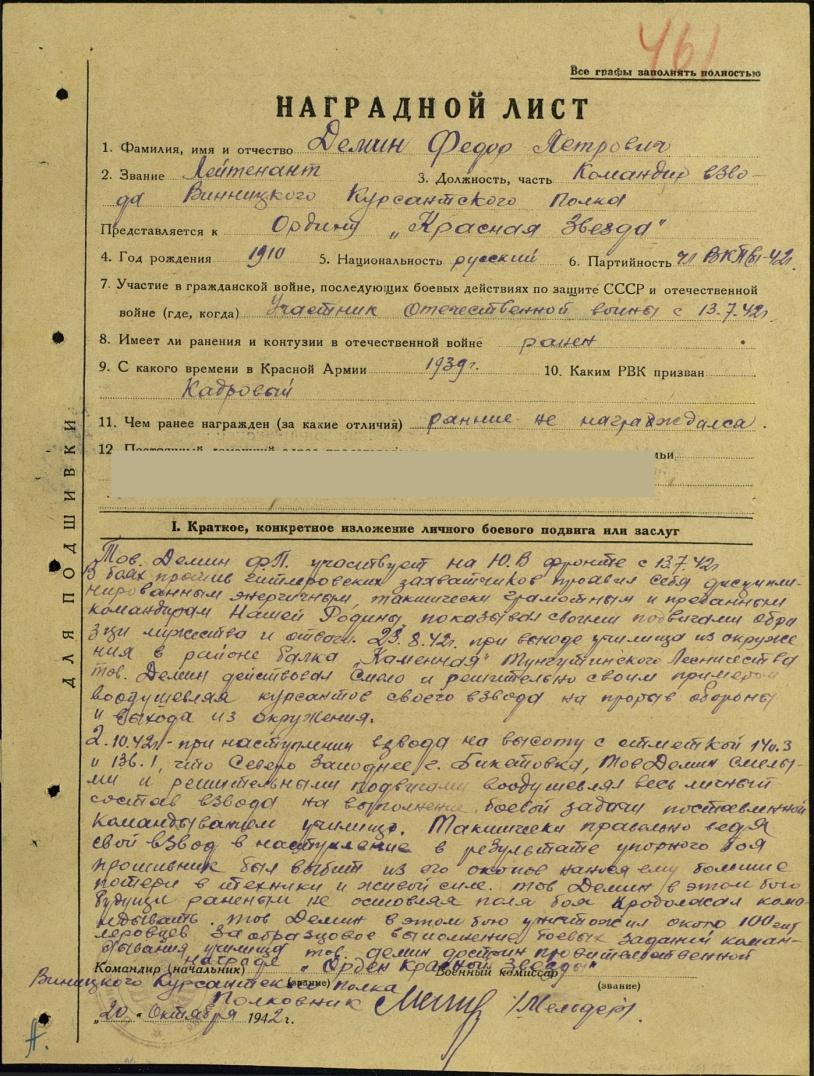 461
Все графы заполнять полностью
НАГРАДНОЙ ЛИСТ
1. Фамилия, имя и отчество Демин Федор Петрович
2. Звание Лейтенант 3. Должность, часть Командир взво-
да Винницкого Курсантского Полка
Представляется к Ордину „Красная Звезда"
4. Год рождения 1910 5. Национальность русский 6. Партийность чл ВКПб-42г.
7. Участие в гражданской войне, последующих боевых действиях по защите СССР и отечественной
войне (где, когда) Участник Отечественной войны с 13.7.42г
8. Имеет ли ранения и контузии в отечественной войне ранен
9. С какого времени в Красной Армии 1939г. 10. Каким РВК призван
Кадровый
11. Чем ранее награжден (за какие отличия) ранние не награждался.
12
ДЛЯ ПОДШИВКИ
I. Краткое, конкретное изложение личного боевого подвига или заслуг
Тов. Демин Ф.П. участвует на Ю.В фронте с 13.7.42г
В боях против гитлеровских захватчиков проявил себя дисципли-
нированным энергичным, тактически грамотным и преданным
командирам Нашей Родины, показывая своими подвигами обра
зци мужества и отваги. 23.8.42г. при выходе училища из окруже
ния в районе балка „Каменная" Тунгутинского Лесничества
тов. Демин действовал Смело и решительно своим примером
воодушевляя курсантов своего взвода на прорыв обороны
и выхода из окружения.
2.10.42г. при наступлении взвода на высоту с отметкой 140.3
и 136.1, что Северо Западнее г. Бикетовка, Тов Демин смелы-
ми и решительными подвигами воодушевлял весь личный
состав взвода на выполнение боевой задачи поставленной
командыванием училища. Тактически правильно ведя
свой взвод в наступление в результате упорного боя
противник был выбит из его окопов нанося ему большие
потери в техники и живой силе. Тов Демин в этом бою
будучи раненым не оставляя поля боя продолжал кома-
ндывать. Тов Демин в этом бою уничтожил около 100 гит
леровцев. За образцовое выполнение боевых заданий коман-
дывания училища тов. Демин достоин правительственной
награде „Орден Красной Звезды"
Командир (начальник) Военный комиссар
Виницкого Курсантского полка
(звание) (звание)
Полковник /Мельдер/.
„20" Октября 1942 г.